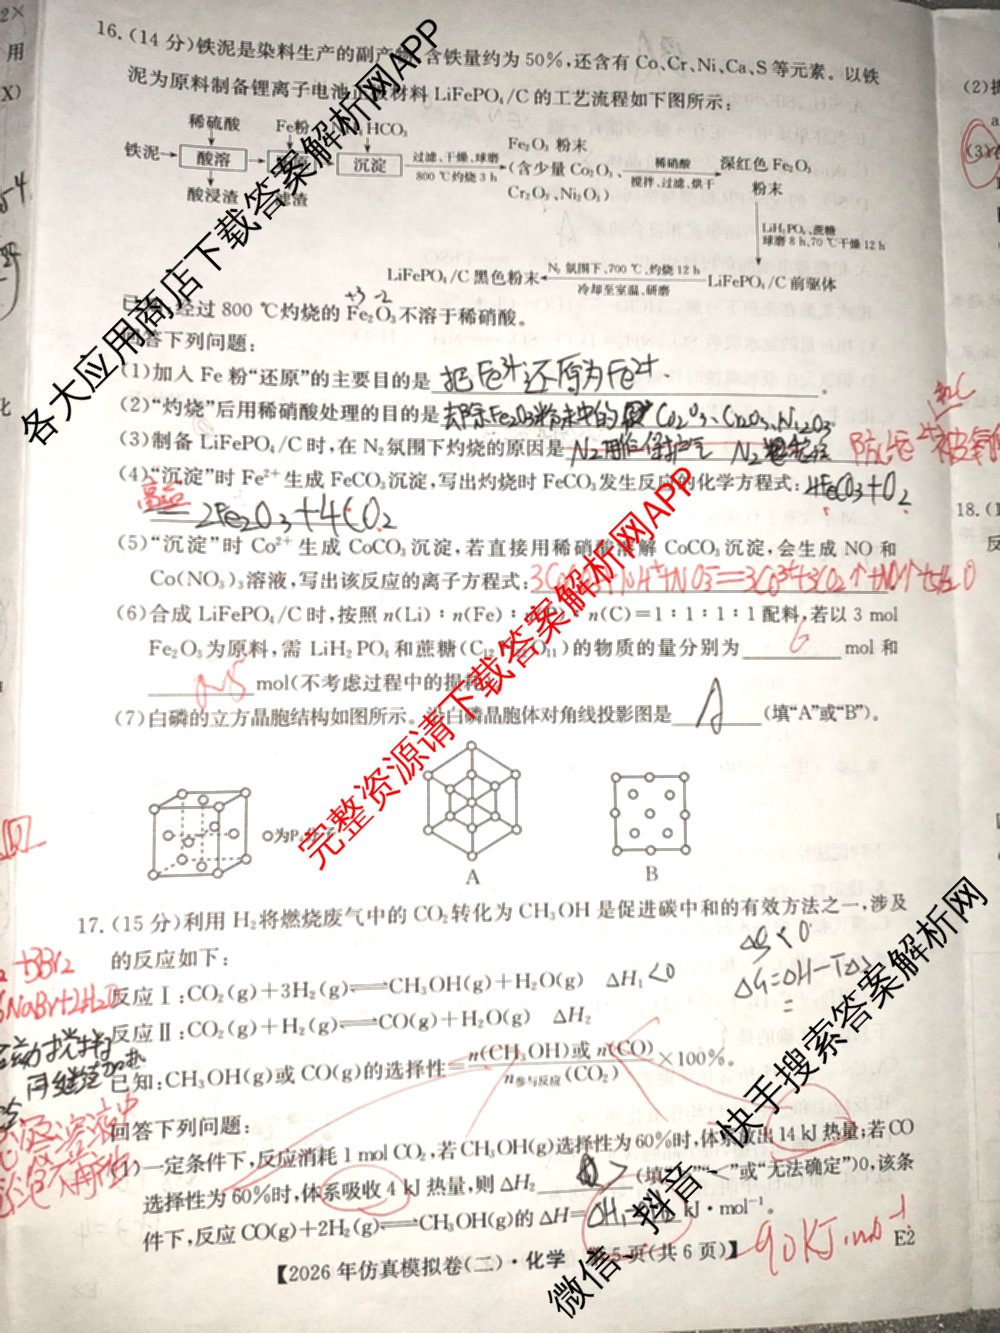 16.(14分)铁泥是染料生产的副产 含铁量约为50%,还含有Co、Cr、Ni、Ca、S等元素。以铁
泥为原料制备锂离子电池 材料LiFePO₄/C的工艺流程如下图所示:
稀硫酸 Fe粉 HCO₃
铁泥 酸溶 沉淀 过滤、干燥、球磨 800℃灼烧3h
Fe₂O₃粉末
(含少量Co₂O₃、
Cr₂O₃、Ni₂O₃)
稀硝酸 搅拌、过滤、烘干
深红色Fe₂O₃
粉末
酸浸渣 滤渣
LiH₂PO₄、蔗糖
球磨8h、70℃干燥12h
LiFePO₄/C黑色粉末 N₂氛围下、700℃、灼烧12h 冷却至室温、研磨 LiFePO₄/C前驱体
+3 -2
经过800℃灼烧的Fe₂O₃不溶于稀硝酸。
回答下列问题:
(1)加入Fe粉“还原”的主要目的是 把Fe³⁺还原为Fe²⁺
(2)“灼烧”后用稀硝酸处理的目的是 去除Fe₂O₃粉末中的 Co₂O₃、Cr₂O₃、Ni₂O₃
(3)制备LiFePO₄/C时,在N₂氛围下灼烧的原因是 N₂用做保护气 N₂
(4)“沉淀”时Fe²⁺生成FeCO₃沉淀,写出灼烧时FeCO₃发生反应的化学方程式: 4FeCO₃+O₂
高温
2Fe₂O₃+4CO₂
(5)“沉淀”时Co²⁺生成CoCO₃沉淀,若直接用稀硝酸溶解CoCO₃沉淀,会生成NO和
Co(NO₃)₃溶液,写出该反应的离子方程式:
(6)合成LiFePO₄/C时,按照n(Li):n(Fe):n(P):n(C)=1:1:1:1配料,若以3 mol
Fe₂O₃为原料,需LiH₂PO₄和蔗糖(C₁₂H₂₂O₁₁)的物质的量分别为 6 mol和
0.5 mol(不考虑过程中的损耗)
(7)白磷的立方晶胞结构如图所示。沿白磷晶胞体对角线投影图是 A (填“A”或“B”)。
为P₄分子
A
B
17.(15分)利用H₂将燃烧废气中的CO₂转化为CH₃OH是促进碳中和的有效方法之一,涉及
的反应如下:
ΔG<0
反应Ⅰ:CO₂(g)+3H₂(g)⇌CH₃OH(g)+H₂O(g) ΔH₁ <0
ΔG=ΔH-TΔ
反应Ⅱ:CO₂(g)+H₂(g)⇌CO(g)+H₂O(g) ΔH₂
已知:CH₃OH(g)或CO(g)的选择性=n(CH₃OH)或n(CO)/n参与反应(CO₂)×100%。
回答下列问题:
(1)一定条件下,反应消耗1 mol CO₂,若CH₃OH(g)选择性为60%时,体系放出14 kJ热量;若CO
选择性为60%时,体系吸收4 kJ热量,则ΔH₂ > (填 或“无法确定”)0,该条
件下,反应CO(g)+2H₂(g)⇌CH₃OH(g)的ΔH= kJ·mol⁻¹。
-90kJ·mol⁻¹
【2026年仿真模拟卷(二)·化学 第5页(共6页)】
E2
各大应用商店下载答案解析网APP
完整资源请下载答案解析网APP
微信-抖音-快手搜索答案解析网